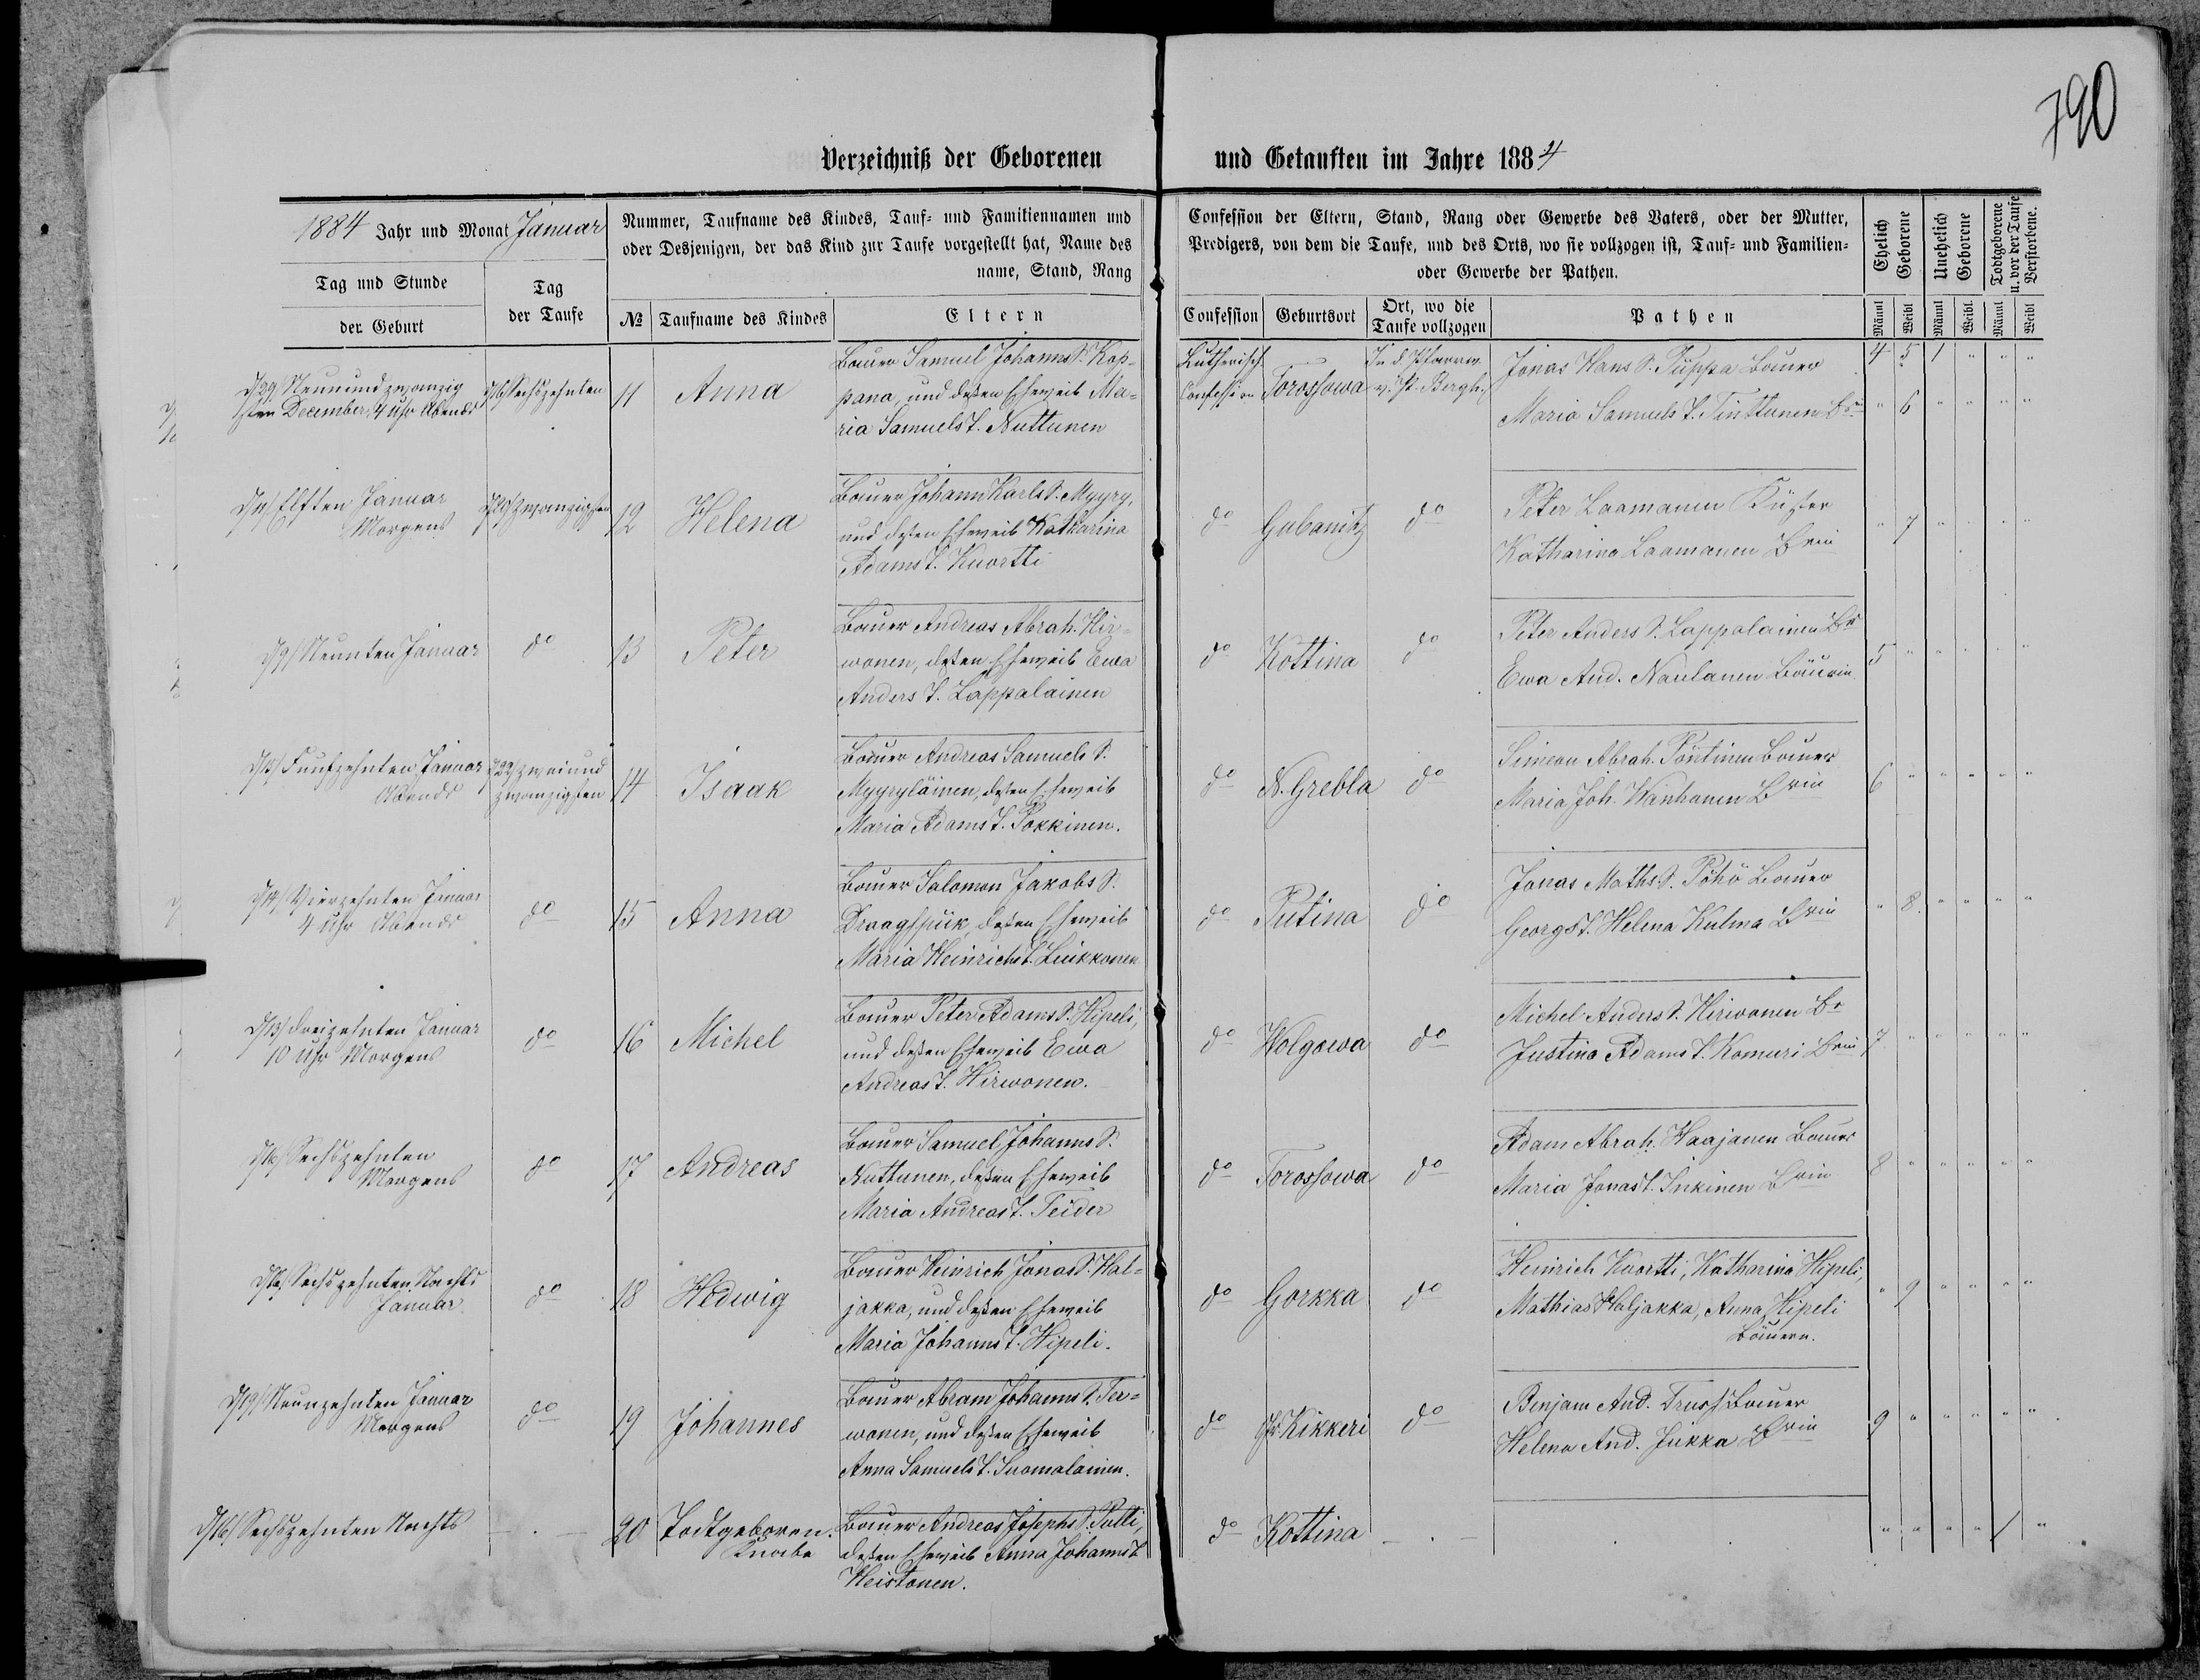 790
Verzeichniß der Geborenen und Getauften im Jahre 1884
1884 Jahr und Monat Januar
Tag und Stunde
der Geburt
Tag
der Taufe
Nummer, Taufname des Kindes, Tauf- und Familiennamen und
oder Desjenigen, der das Kind zur Taufe vorgestellt hat, Name des
name, Stand, Rang
№
Taufname des Kindes
Eltern
Confession der Eltern, Stand, Rang oder Gewerbe des Vaters, oder der Mutter,
Predigers, von dem die Taufe, und des Orts, wo sie vollzogen ist, Tauf- und Familien-
oder Gewerbe der Pathen.
Confession
Geburtsort
Ort, wo die
Taufe vollzogen
Pathen
Ehelich
Geborene
Unehelich
Geborene
Todtgeborene
u. vor der Taufe
Verstorbene.
Männl
Weibl
Männl
Weibl.
Männl
Weibl
4 5 1 " " "
Neunundzwanzig
sten December, 4 Uhr Abends
Sechszehnten
11
Anna
Bauer Samuel Johanns S. Kap-
pana, und dessen Eheweib Ma-
ria Samuels T. Nuttunen
Lutherisch.
Confession
Torossowa
In d. Pfarrw.
v. P. Bergh.
Jonas Hans S. Puppa Bauer
Maria Samuels T. Tinttunen Brin
" 6 " " " "
Elften Januar
Morgens
Zwanzigsten
12
Helena
Bauer Johann Karls S. Myyry,
und dessen Eheweib Katharina
Adams T. Kuortti
do
Gubanitz
do
Peter Laamanen Küster
Katharina Laamanen Brin
" 7 " " " "
d/9/ Neunten Januar
do
13
Peter
Bauer Andreas Abrah. Hir-
wonen, dessen Eheweib Ewa
Anders T. Lappalainen
do
Kottina
do
Peter Anders S. Lappalainen Br
Ewa And. Naulanen Bäurin
5 " " " " "
d/15/ Funfzehnten Januar
Abends
d/22/ zweiund
zwanzigsten
14
Isaak
Bauer Andreas Samuels S.
Myyryläinen, dessen Eheweib
Maria Adams T. Pokkinen.
do
N. Grebla
do
Simeon Abrah. Pöntinen Bauer
Maria Joh. Wanhanen Brin
6 " " " " "
d/14/ Vierzehnten Januar
4 Uhr Abends
do
15
Anna
Bauer Salomon Jakobs S.
dessen Eheweib
Maria Heinrichs T. Liukkonen
do
Putina
do
Jonas Maths S. Pöhö Bauer
Georgs T. Helena Kulma Brin
" 8. " " " "
d/13/ dreizehnten Januar
10 Uhr Morgens
do
16
Michel
Bauer Peter Adams S. Hipeli,
und dessen Eheweib Ewa
Andreas T. Hirwonen.
do
Wolgowa
do
Michel Anders S. Hirwonen Br
Justina Adams T. Komuri Brin
7 " " " " "
d/16/ Sechszehnten
Morgens
do
17
Andreas
Bauer Samuel Johanns S.
Nuttunen, dessen Eheweib
Maria Andreas T. Teider
do
Torossowa
do
Adam Abrah. Haajanen Bauer
Maria Jonas T. Inkinen Brin
8 " " " " "
d/16/ Sechszehnten Nachts
Januar
do
18
Hedwig
Bauer Heinrich Jonas S. Hal-
jakka, und dessen Eheweib
Maria Johanns T. Hipeli.
do
Gorkka
do
Heinrich Kuortti, Katharina Hipeli,
Mathias Haljakka, Anna Hipeli
Bauern.
" 9 " " " "
d/19/ Neunzehnten Januar
Morgens
do
19
Johannes
Bauer Abram Johanns S. Ter-
wonen, und dessen Eheweib
Anna Samuels T. Suomalainen.
do
Kikkeri
do
Benjam And. Bauer
Helena And. Jukka Brin
9 " " " " "
d/16/ Sechszehnten Nachts
20
Todtgeboren.
Knabe
Bauer Andreas Josephs S. Pulli,
dessen Eheweib Anna Johanns T
Heistonen.
do
Kottina
" " " " 1 "